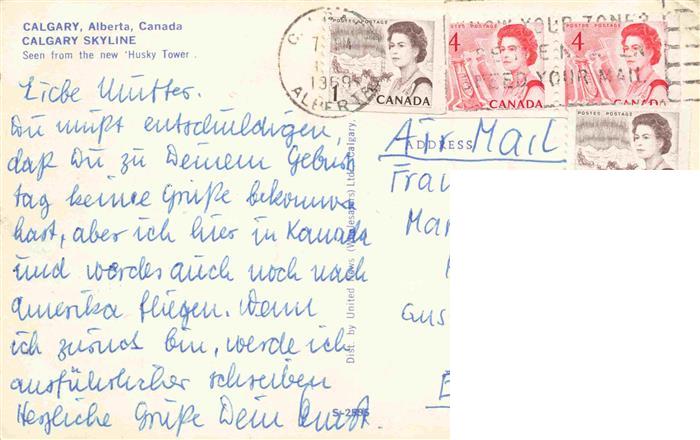 CALGARY, Alberta, Canada
CALGARY SKYLINE
Seen from the new 'Husky Tower'.
Liebe Mutter.
Du mußt entschuldigen,
daß Du zu Deinem Geburts
tag keine Grüße bekommen
hast, aber ich hier in Kanada
und werde auch noch nach
Amerika fliegen. Wenn
ich zurück bin, werde ich
ausführlicher schreiben
Herzliche Grüße Dein
S-2595
Dist. by United News (Wholesalers) Ltd. Calgary,
POSTES POSTAGE
1
CANADA
POSTES POSTAGE
4
CANADA
POSTES POSTAGE
4
CANADA
POSTES POSTAGE
1969
ALBERTA
YOUR ZONE?
SPEED YOUR MAIL
ADDRESS
Air Mail
Frau
Mar
Gus